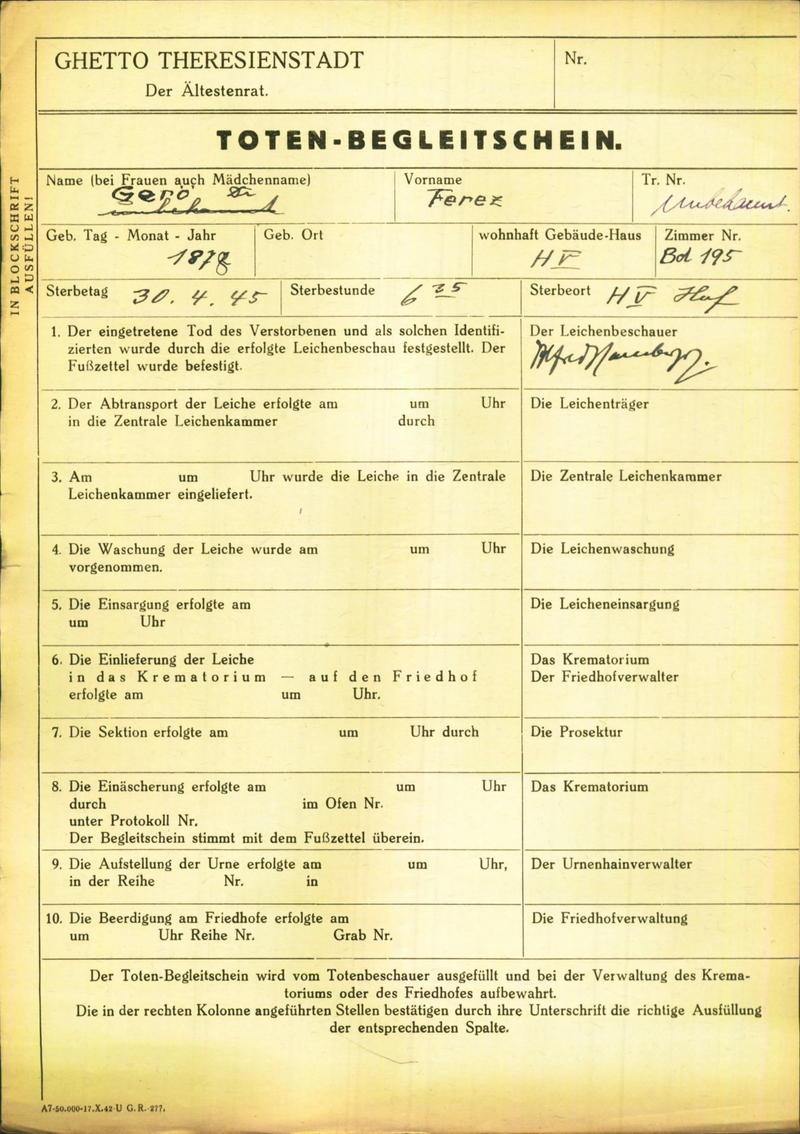 GHETTO THERESIENSTADT
Der Ältestenrat.
Nr.
TOTEN-BEGLEITSCHEIN.
IN BLOCKSCHRIFT
AUSFÜLLEN!
Name (bei Frauen auch Mädchenname)
Gerö
Vorname
Ferez
Tr. Nr.
Unbekannt.
Geb. Tag - Monat - Jahr
1878
Geb. Ort
wohnhaft Gebäude-Haus
H V
Zimmer Nr.
Bol 195
Sterbetag 30. 4. 45
Sterbestunde 6 25
Sterbeort H V Hof
1. Der eingetretene Tod des Verstorbenen und als solchen Identifi-
zierten wurde durch die erfolgte Leichenbeschau festgestellt. Der
Fußzettel wurde befestigt.
Der Leichenbeschauer
2. Der Abtransport der Leiche erfolgte am um Uhr
in die Zentrale Leichenkammer durch
Die Leichenträger
3. Am um Uhr wurde die Leiche in die Zentrale
Leichenkammer eingeliefert.
Die Zentrale Leichenkammer
4. Die Waschung der Leiche wurde am um Uhr
vorgenommen.
Die Leichenwaschung
5. Die Einsargung erfolgte am
um Uhr
Die Leicheneinsargung
6. Die Einlieferung der Leiche
in das Krematorium — auf den Friedhof
erfolgte am um Uhr.
Das Krematorium
Der Friedhofverwalter
7. Die Sektion erfolgte am um Uhr durch
Die Prosektur
8. Die Einäscherung erfolgte am um Uhr
durch im Ofen Nr.
unter Protokoll Nr.
Der Begleitschein stimmt mit dem Fußzettel überein.
Das Krematorium
9. Die Aufstellung der Urne erfolgte am um Uhr,
in der Reihe Nr. in
Der Urnenhainverwalter
10. Die Beerdigung am Friedhofe erfolgte am
um Uhr Reihe Nr. Grab Nr.
Die Friedhofverwaltung
Der Toten-Begleitschein wird vom Totenbeschauer ausgefüllt und bei der Verwaltung des Krema-
toriums oder des Friedhofes aufbewahrt.
Die in der rechten Kolonne angeführten Stellen bestätigen durch ihre Unterschrift die richtige Ausfüllung
der entsprechenden Spalte.
A7-50.000-17.X.42 U G. R. 277.